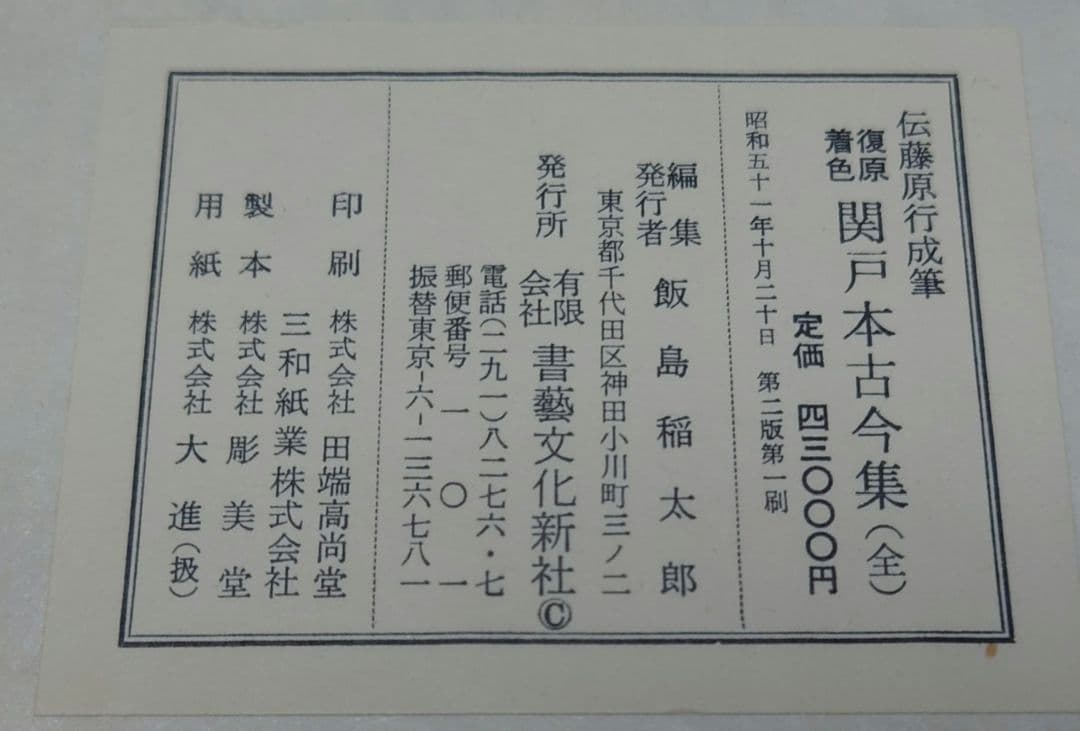 伝藤原行成筆
復原
着色
関戸本古今集(全)
定価 四三〇〇〇円
昭和五十一年十月二十日 第二版第一刷
編集
発行者
飯島稲太郎
東京都千代田区神田小川町三ノ二
発行所
有限
会社
書藝文化新社©
電話(二九一)八二七六・七
郵便番号 一〇一
振替東京-六-一三六七八一
印刷 株式会社 田端高尚堂
三和紙業株式会社
製本 株式会社 彫美堂
用紙 株式会社 大進(扱)